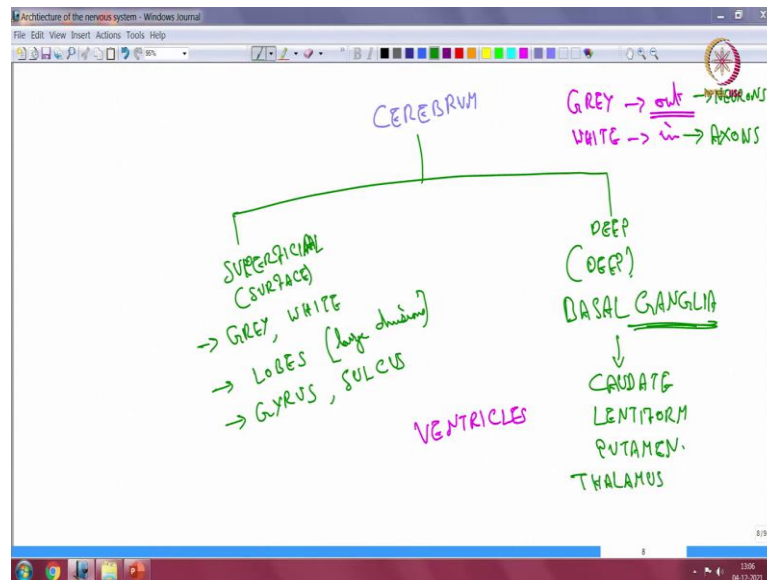 Archtiecture of the nervous system - Windows Journal
File Edit View Insert Actions Tools Help
CEREBRUM
GREY → out → NEURONS
WHITE → in → AXONS
SUPERFICIAL
(SURFACE)
→ GREY, WHITE
→ LOBES (large divisions)
→ GYRUS, SULCUS
DEEP
(DEEP)
BASAL GANGLIA
↓
CAUDATE
LENTIFORM
PUTAMEN.
THALAMUS
VENTRICLES
8
8/9
13:06
04-12-2021